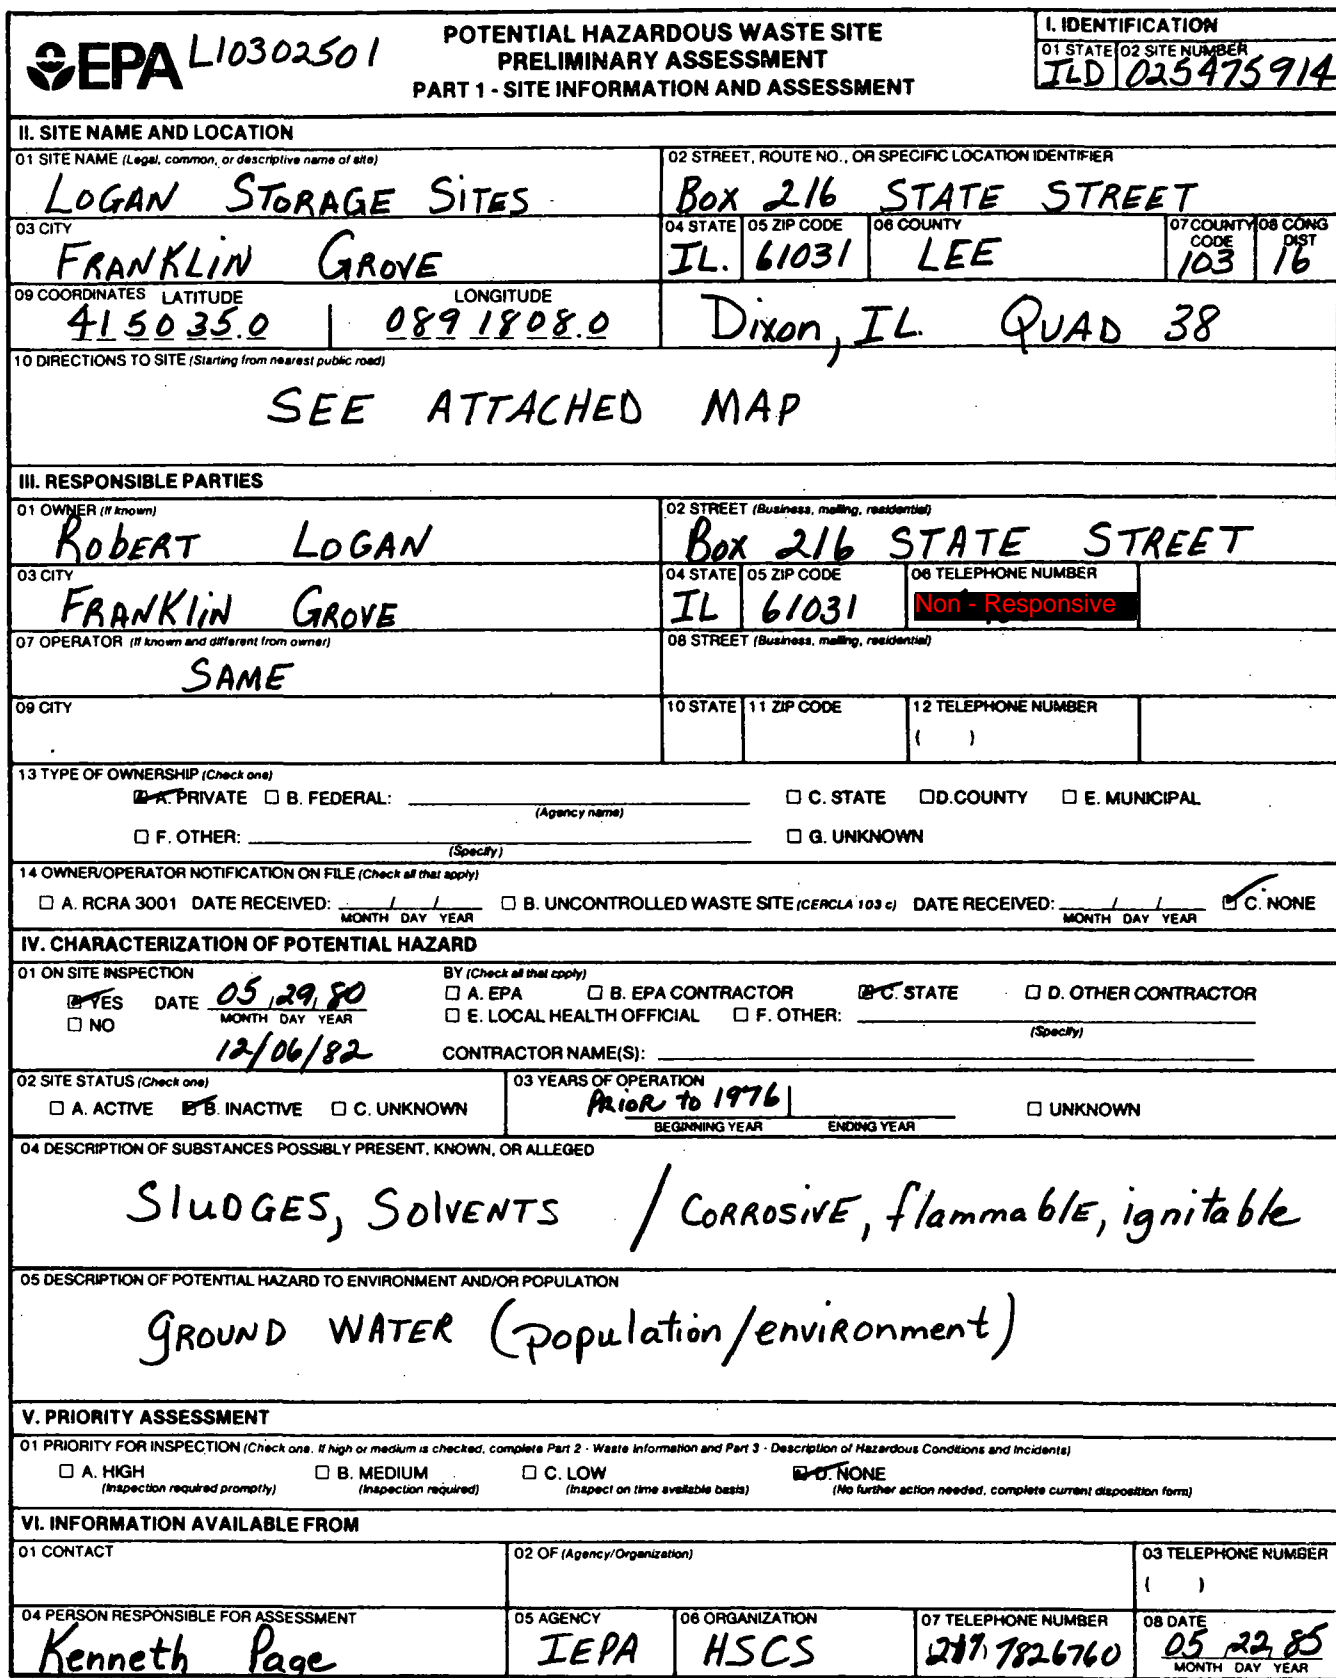 EPA L10302501
POTENTIAL HAZARDOUS WASTE SITE
PRELIMINARY ASSESSMENT
PART 1 - SITE INFORMATION AND ASSESSMENT
I. IDENTIFICATION
01 STATE 02 SITE NUMBER
ILD 025475914
II. SITE NAME AND LOCATION
01 SITE NAME (Legal, common, or descriptive name of site)
LOGAN STORAGE SITES
02 STREET, ROUTE NO., OR SPECIFIC LOCATION IDENTIFIER
Box 216 STATE STREET
03 CITY
FRANKLIN GROVE
04 STATE 05 ZIP CODE 06 COUNTY 07 COUNTY CODE 08 CONG DIST
IL. 61031 LEE 103 16
09 COORDINATES LATITUDE LONGITUDE
41 50 35.0 089 18 08.0
Dixon, IL. QUAD 38
10 DIRECTIONS TO SITE (Starting from nearest public road)
SEE ATTACHED MAP
III. RESPONSIBLE PARTIES
01 OWNER (If known)
RobERT LOGAN
02 STREET (Business, mailing, residential)
Box 216 STATE STREET
03 CITY
FRANKLIN GROVE
04 STATE 05 ZIP CODE 06 TELEPHONE NUMBER
IL 61031 Non - Responsive
07 OPERATOR (If known and different from owner)
SAME
08 STREET (Business, mailing, residential)
09 CITY
10 STATE 11 ZIP CODE 12 TELEPHONE NUMBER
( )
13 TYPE OF OWNERSHIP (Check one)
☒ A. PRIVATE ☐ B. FEDERAL: (Agency name) ☐ C. STATE ☐ D. COUNTY ☐ E. MUNICIPAL
☐ F. OTHER: (Specify) ☐ G. UNKNOWN
14 OWNER/OPERATOR NOTIFICATION ON FILE (Check all that apply)
☐ A. RCRA 3001 DATE RECEIVED: / / ☐ B. UNCONTROLLED WASTE SITE (CERCLA 103 c) DATE RECEIVED: / / ☒ C. NONE
MONTH DAY YEAR MONTH DAY YEAR
IV. CHARACTERIZATION OF POTENTIAL HAZARD
01 ON SITE INSPECTION
☒ YES DATE 05,29,80
☐ NO MONTH DAY YEAR
12/06/82
BY (Check all that apply)
☐ A. EPA ☐ B. EPA CONTRACTOR ☒ C. STATE ☐ D. OTHER CONTRACTOR
☐ E. LOCAL HEALTH OFFICIAL ☐ F. OTHER: (Specify)
CONTRACTOR NAME(S):
02 SITE STATUS (Check one)
☐ A. ACTIVE ☒ B. INACTIVE ☐ C. UNKNOWN
03 YEARS OF OPERATION
PRIOR to 1976 | ☐ UNKNOWN
BEGINNING YEAR ENDING YEAR
04 DESCRIPTION OF SUBSTANCES POSSIBLY PRESENT, KNOWN, OR ALLEGED
SludGES, SolVENTS / CORROSIVE, flammablE, ignitable
05 DESCRIPTION OF POTENTIAL HAZARD TO ENVIRONMENT AND/OR POPULATION
GROUND WATER (population/enviRonment)
V. PRIORITY ASSESSMENT
01 PRIORITY FOR INSPECTION (Check one. If high or medium is checked, complete Part 2 - Waste Information and Part 3 - Description of Hazardous Conditions and Incidents)
☐ A. HIGH ☐ B. MEDIUM ☐ C. LOW ☒ D. NONE
(Inspection required promptly) (Inspection required) (Inspect on time available basis) (No further action needed, complete current disposition form)
VI. INFORMATION AVAILABLE FROM
01 CONTACT 02 OF (Agency/Organization) 03 TELEPHONE NUMBER
( )
04 PERSON RESPONSIBLE FOR ASSESSMENT 05 AGENCY 06 ORGANIZATION 07 TELEPHONE NUMBER 08 DATE
Kenneth Page IEPA HSCS 217 7826760 05,22,85
MONTH DAY YEAR